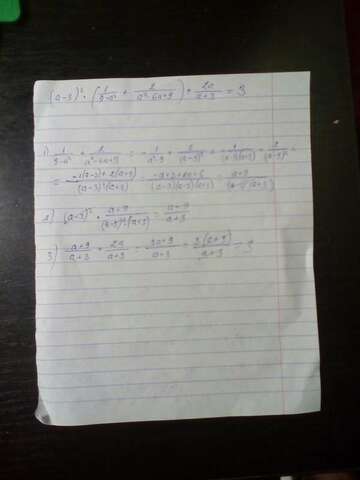 (a-3)² · (1/(9-a²) + 2/(a²-6a+9)) + 2a/(a+3) = 3
1) 1/(9-a²) + 2/(a²-6a+9) = -1/(a²-9) + 2/(a-3)² = -1/((a-3)(a+3)) + 2/(a-3)² =
= (-1(a-3)+2(a+3))/((a-3)²(a+3)) = (-a+3+2a+6)/((a-3)(a-3)(a+3)) = (a+9)/((a-3)²(a+3))
2) (a-3)² · (a+9)/((a-3)²(a+3)) = (a+9)/(a+3)
3) (a+9)/(a+3) + 2a/(a+3) = (3a+9)/(a+3) = 3(a+3)/(a+3) = 3